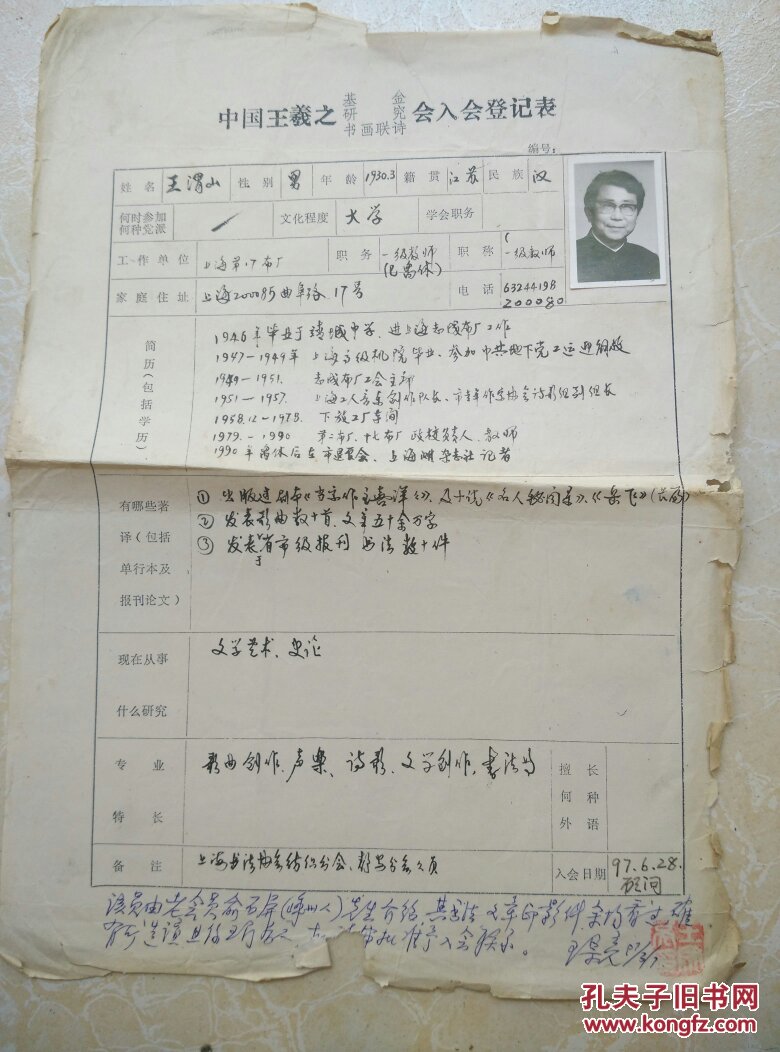 基金
中国王羲之研究会入会登记表
书画联诗
编号：
姓名 王渭山 性别 男 年龄 1930.3 籍贯 江苏 民族 汉
何时参加何种党派 / 文化程度 大学 学会职务
工作单位 上海第17布厂 职务 一级教师(已离休) 职称 一级教师
家庭住址 上海200085曲阜路17号 电话 63244198 200080
简历(包括学历)
1946年毕业于靖城中学、进上海志成布厂工作
1947—1949年 上海高级机院毕业、参加中共地下党工运迎解放
1949—1951. 志成布厂工会主部
1951—1957. 上海工人音乐创作队长、市青年作家协会诗歌组副组长
1958.12—1978. 下放工厂车间
1979.—1990 第二布厂、十七布厂 政校负责人、教师
1990年离休后在市退管会、上海 杂志社记者
有哪些著译(包括单行本及报刊论文)
① 出版连剧本《当家作主喜洋洋》、及小说《名人秘闻录》、《岳飞》(长篇)
② 发表歌曲数十首、文章五十余万字
③ 发表于省市级报刊 书法数十件
现在从事什么研究
文学艺术、史论
专业特长
歌曲创作、声乐、诗歌、文学创作、书法等
擅长何种外语
备注 上海书法协会纺织分会、静安分会会员
入会日期 97.6.28. 顾问
该员由老会员俞 屏(嵊州人)先生介绍 其书法文章印影件 余均看过 确
有所造诣 准予入会
孔夫子旧书网
www.kongfz.com